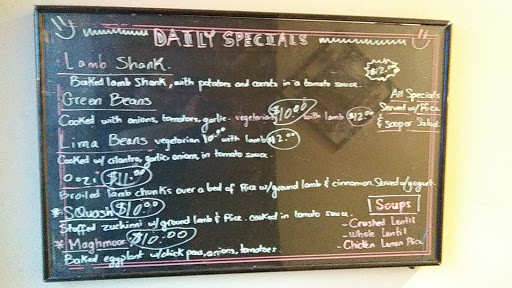 DAILY SPECIALS
Lamb Shank. $12.00
Baked lamb Shank, with potatos and carrots in a tomato sauce.
Green Beans
Cooked with onions, tomatoes, garlic. vegetarian $10.00 with lamb $12.00
Lima Beans vegetarian 10.00 with lamb $12.00
Cooked w/ cilantro, garlic onions, in tomato sauce.
Oozi $11.00
Broiled lamb chunks over a bed of Rice w/ground lamb & cinnamon. Served w/yogurt.
* SQuash $10.00
Stuffed zucchini w/ground lamb & Rice. cooked in tomato sauce.
* Maghmoor $10.00
Baked eggplant w/chick peas, onions, tomatoes.
All Specials
Served w/ Rice
& Soup or Salad.
Soups
- Crushed Lentil
- Whole Lentil
- Chicken Lemon Rice